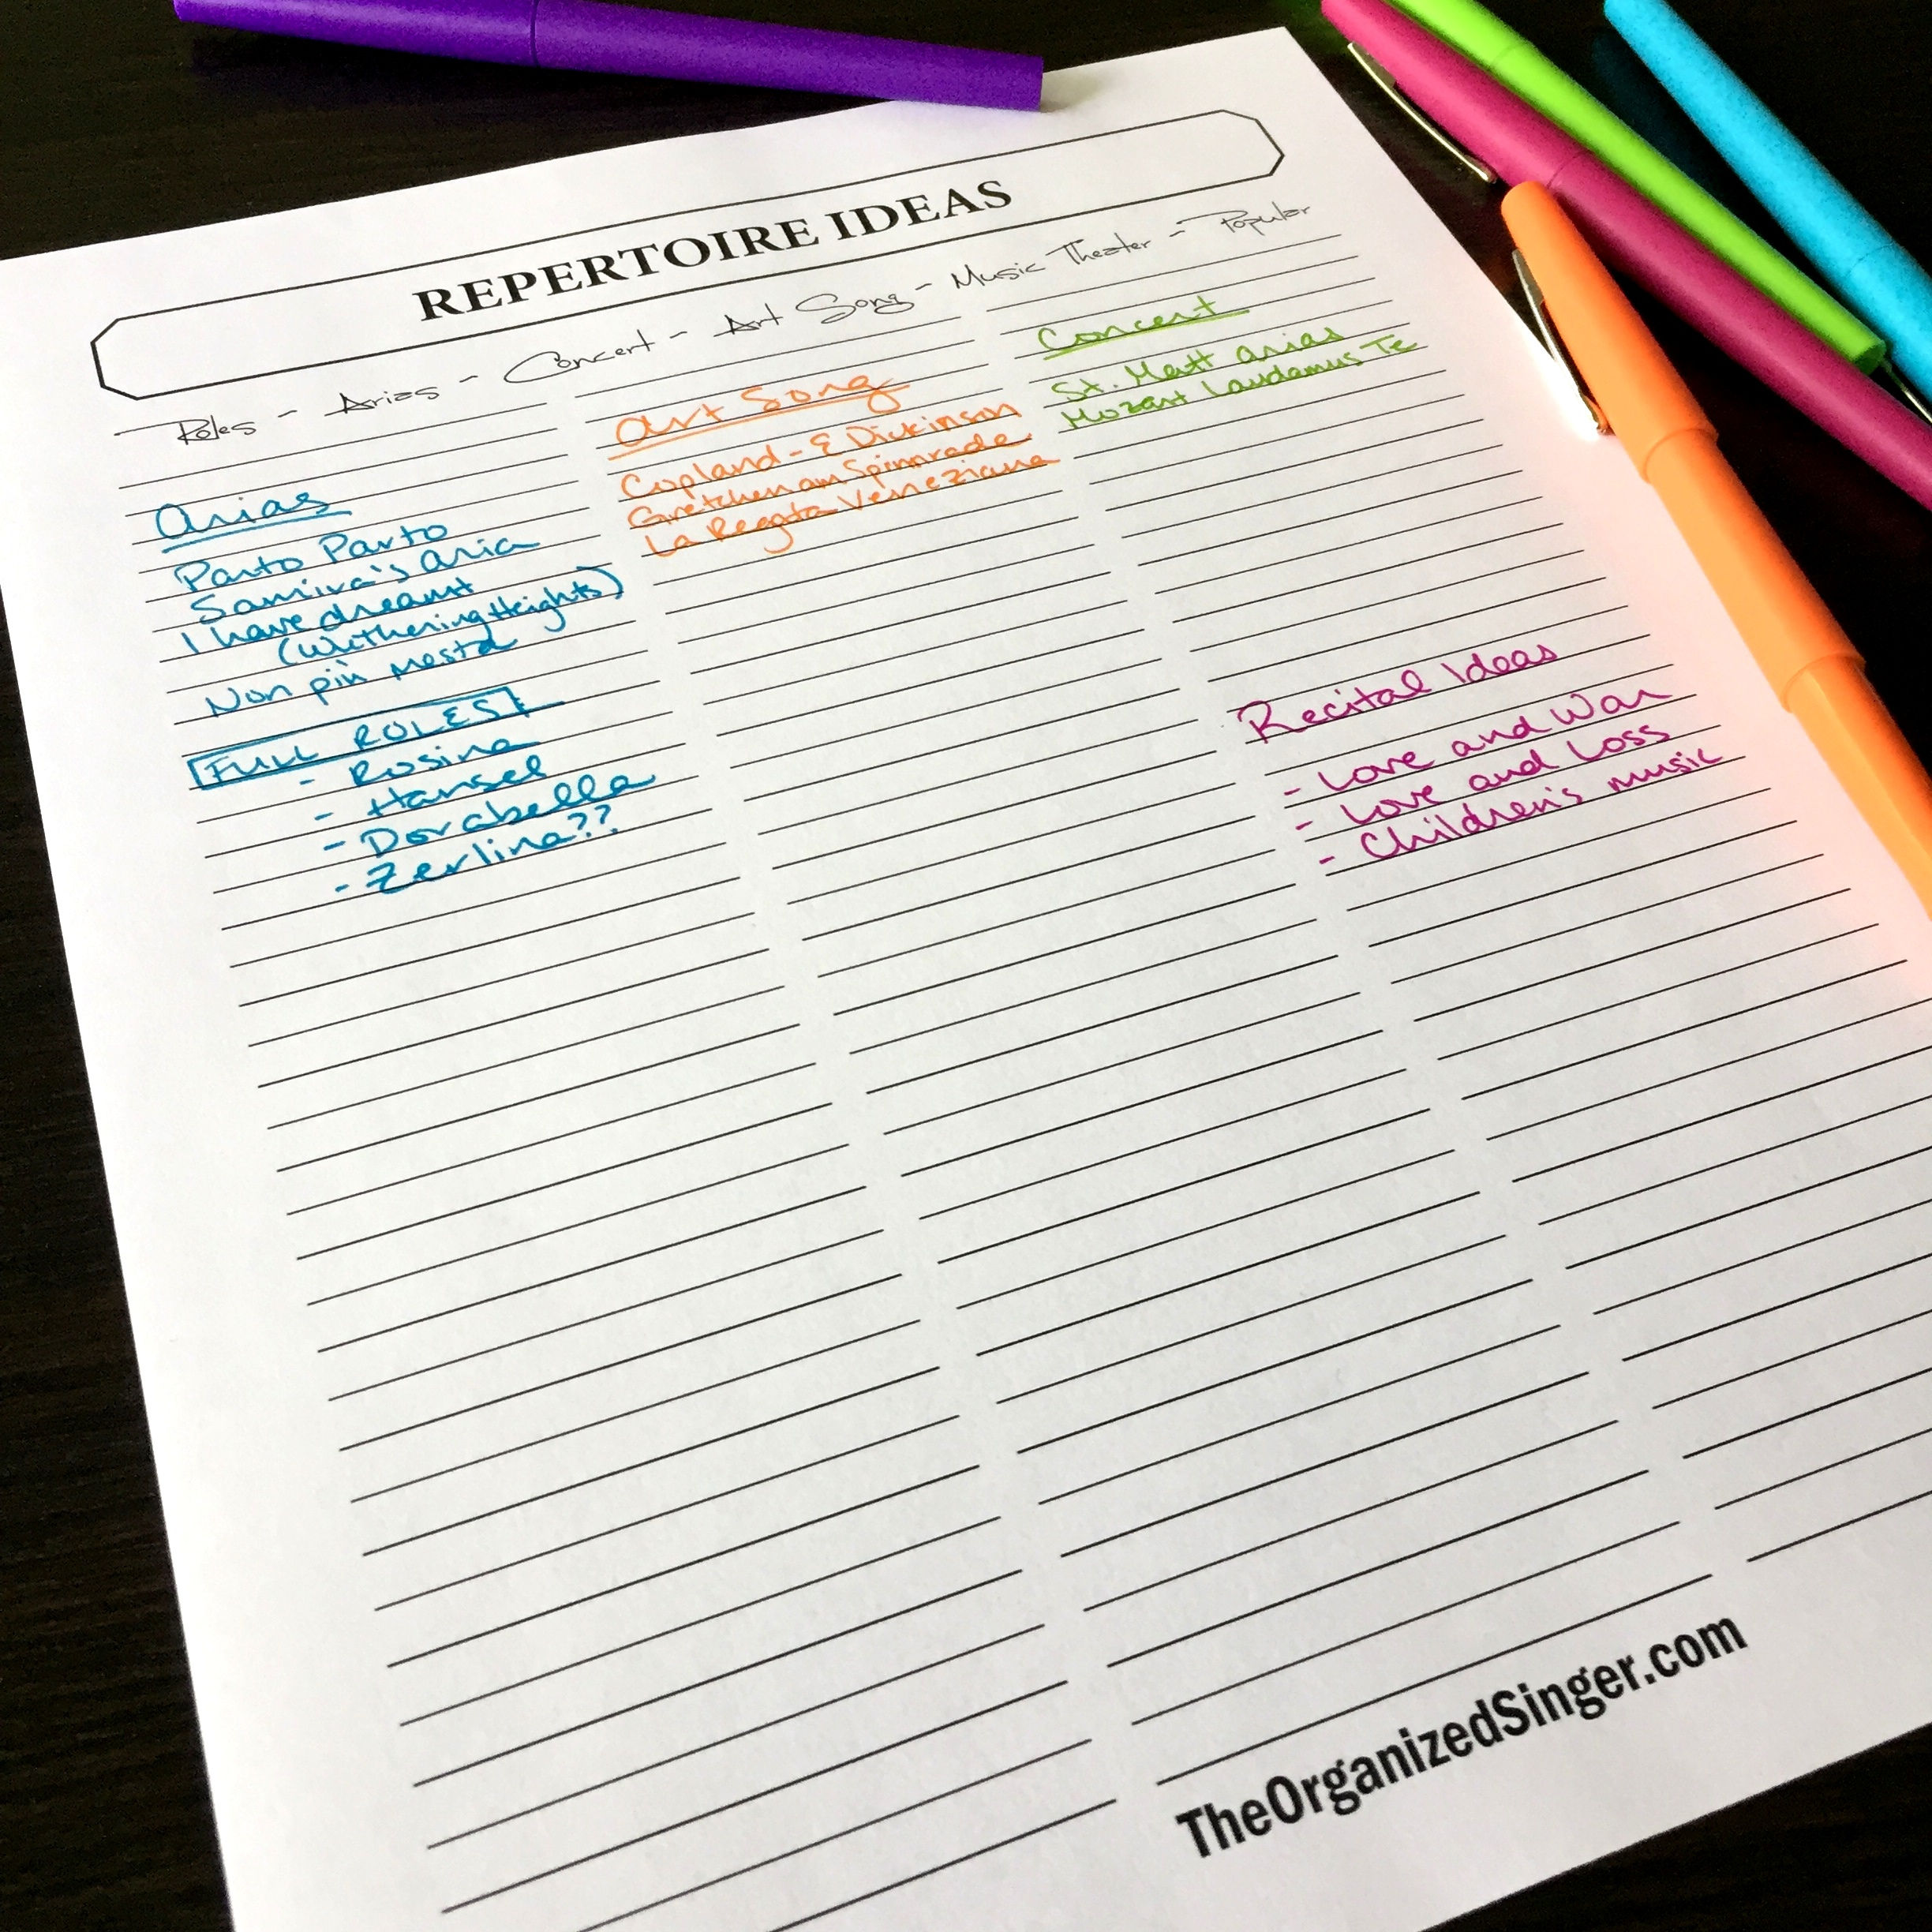 REPERTOIRE IDEAS
Roles - Arias - Concert - Art Song - Music Theater - Popular
Arias
Parto Parto
Samira's Aria
I have dreamt
(Wuthering Heights)
Non più mesta
FULL ROLES!
- Rosina
- Hansel
- Dorabella
- Zerlina??
Art Song
Copland - E Dickinson
Gretchen am Spinnrade
La Regata Veneziana
Concert
St. Matt arias
Mozart Laudamus Te
Recital Ideas
- Love and War
- Love and Loss
- Children's music
TheOrganizedSinger.com